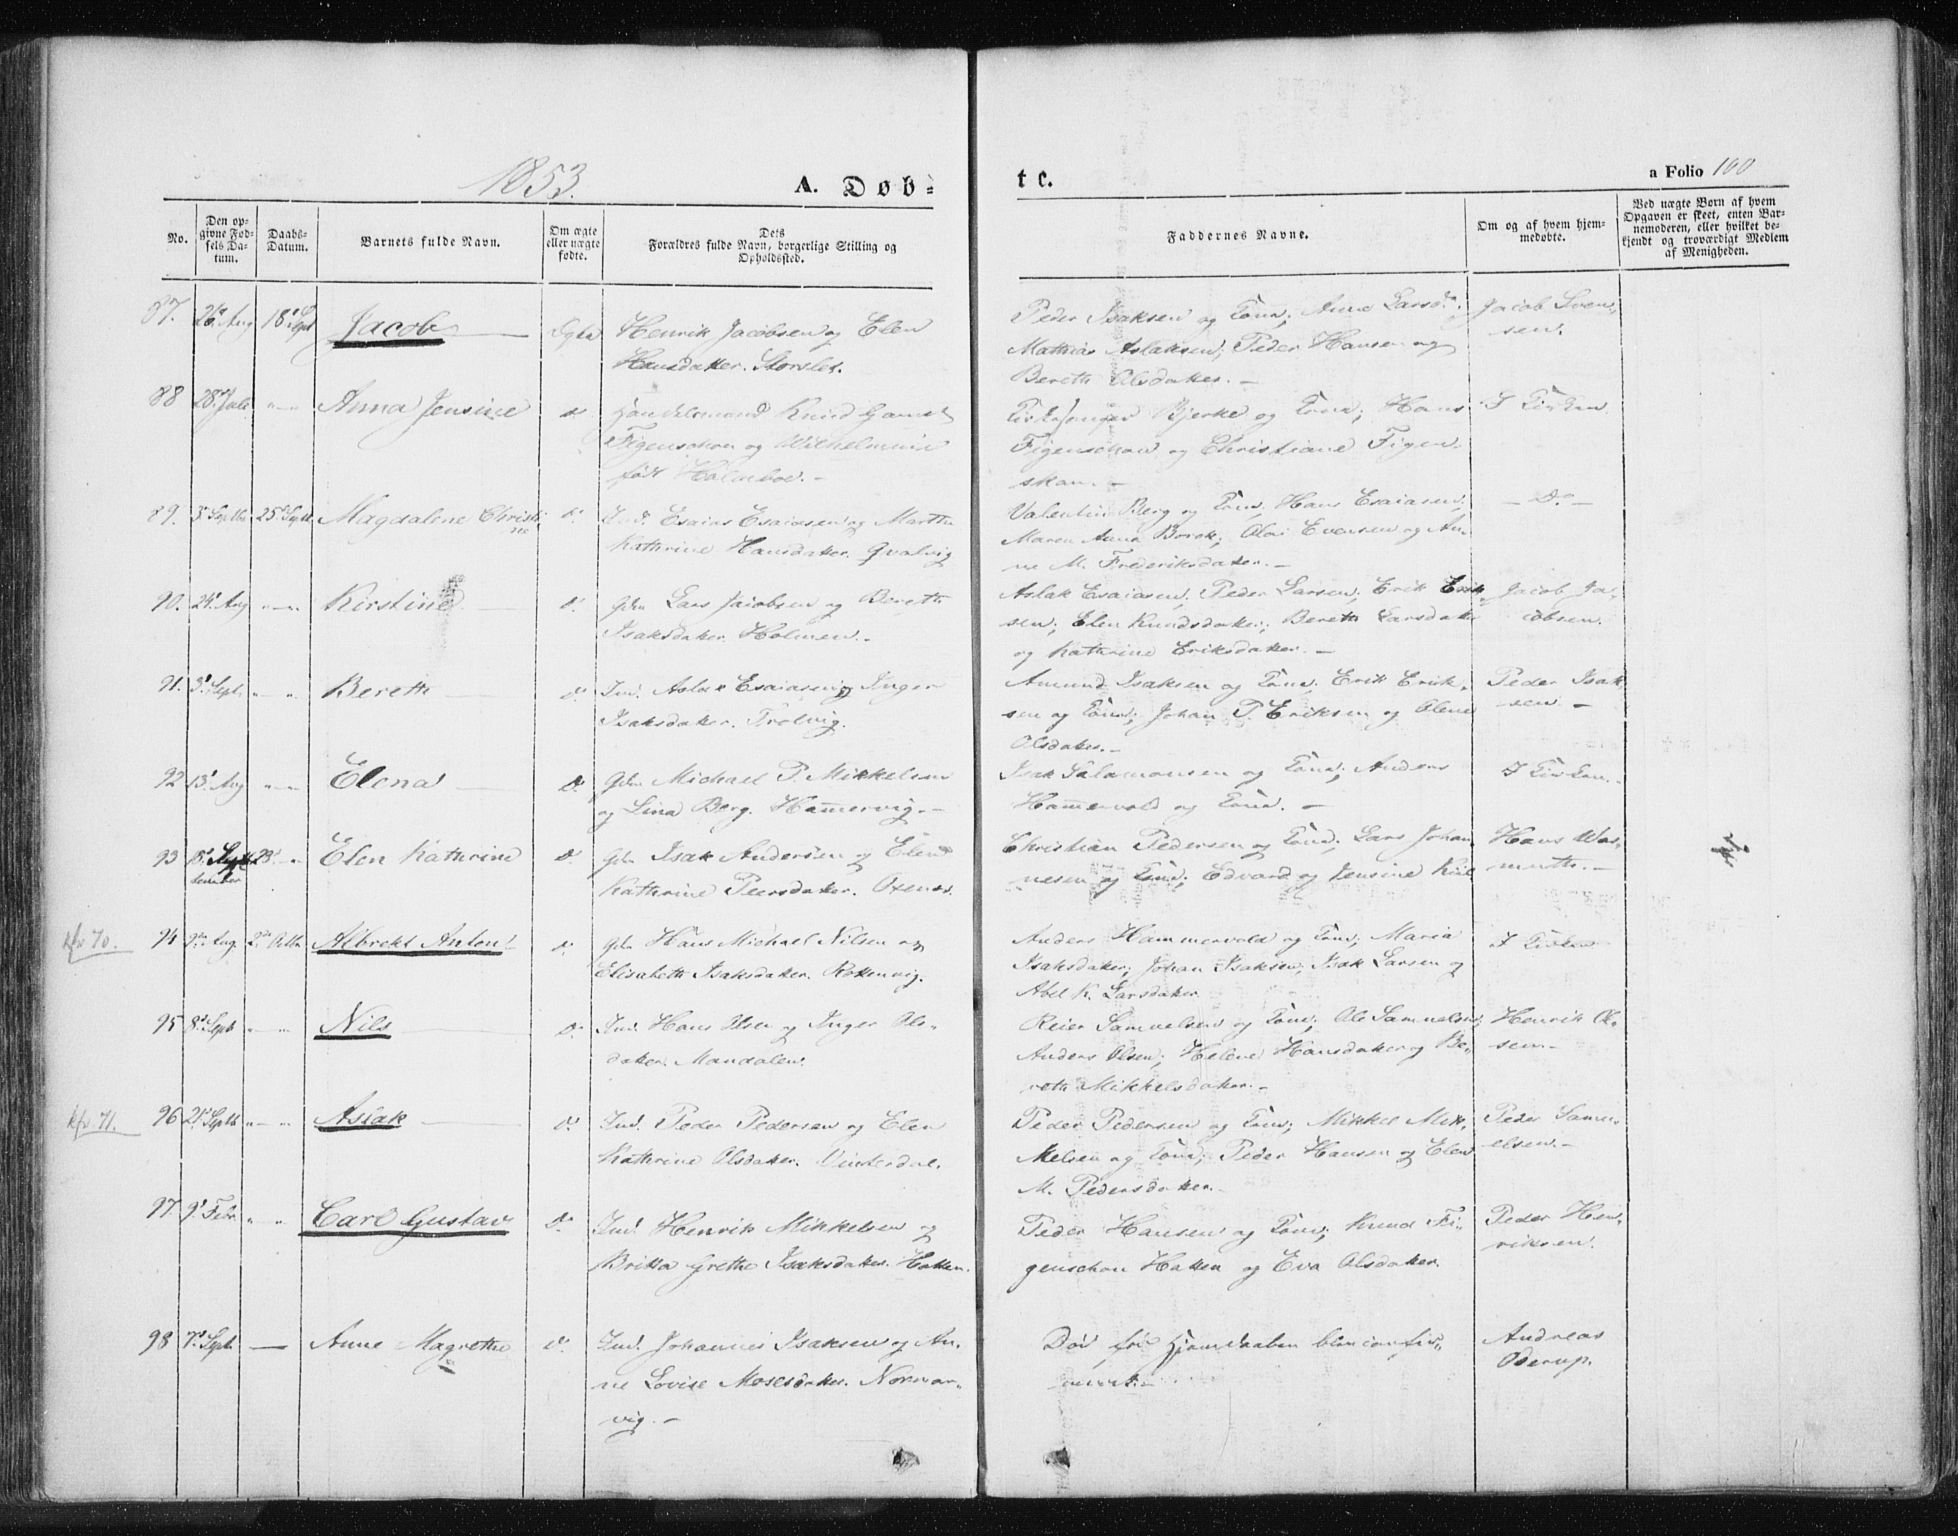 1853.
A. Døb-
te.
a Folio 100
No.
Den op-
givne Fød-
sels Da-
tum.
Daabs-
Datum.
Barnets fulde Navn.
Om ægte
eller uægte
fødte.
Dets
Forældres fulde Navn, borgerlige Stilling og
Opholdssted.
Faddernes Navne.
Om og af hvem hjem-
medøbte.
Ved uægte Børn af hvem
Opgaven er skeet, enten Bar-
nemoderen, eller hvilket be-
kjendt og troværdigt Medlem
af Menigheden.
87. 26 Aug 18 Sept Jacob Ægte Henrik Jacobsen og Elen
Hansdatter. Storslet.
Peder Isaksen og Kone; Anne Larsd.;
Mathias Aslaksen; Peder Hansen og
Bereth Olsdatter. -
Jacob Sven-
sen.
88 28 Juli " " Anna Jensine do Handelsmand Knud Gamst
Figenschou og Wilhelmine
født Holmboe. -
Kirkesanger Bjerke og Kone; Hans
Figenschou og Christiane Figen-
skou. -
I Kirken
89. 3 Septbr 25 Septb Magdalene Christi-
ne
do Ind. Esaias Esaiasen og Marthe
Kathrine Hansdatter. Qvalvig
Valentin Berg og Kone; Hans Esaiasen;
Maren Anna Borch; Ole Evensen og An-
ne M. Frederiksdatter. -
- Do -
90. 24 Aug " " Kirstine do Gdm Lars Jacobsen og Bereth
Isaksdatter. Holmen.
Aslak Esaiasen; Peder Larsen; Erik Erik-
sen; Elen Knudsdatter; Bereth Larsdatter
og Kathrine Eriksdatter. -
Jacob Ja-
cobsen.
91. 3 Sept. " " Bereth do Ind. Aslak Esaiasen og Inger
Isaksdatter. Trolvig.
Amund Isaksen og Kone; Erik Erik-
sen og Kone; Johan P. Eriksen og Olene
Olsdatter. -
Peder Isak-
sen -
92 13 Aug " " Elena do Gdm Michael P. Mikkelsen
og Lina Berg. Hamervig. -
Isak Salamonsen og Kone; Anders
Hamervold og Kone. -
I Kirken.
93 15 Sep-
tember
23 " Elen Kathrine do Gdm Isak Andersen og Elen
Kathrine Peersdatter. Oxenes.
Christian Pedersen og Kone; Lars Johan-
nesen og Kone; Edvard og Jensine Kiil
Hans Was-
muth. -
kfr 70. 94 9 Aug. 2 Octb Albrekt Anton do Gdm Hans Michael Nilsen og
Elisabeth Isaksdatter. Rottenvig.
Anders Hammervold og Kone; Maria
Isaksdatter; Johan Isaksen; Isak Larsen og
Abel K. Larsdatter
I Kirken
95 8 Sept " " Nils do Ind. Hans Olsen og Inger Ols-
datter. Mandalen.
Reier Samuelsen og Kone; Ole Samuelsen;
Anders Olsen; Helene Hansdatter og Be-
reth Mikkelsdatter. -
Henrik Ol-
sen. -
kfr 71. 96 21 Septb " " Aslak do Ind. Peder Pedersen og Elen
Kathrine Olsdatter. Vinterdal.
Peder Pedersen og Kone; Mikkel Mik-
kelsen og Kone; Peder Hansen og Elen
M. Pedersdatter. -
Peder Samu-
elsen. -
97 9 Febr. " " Carl Gustav do Ind. Henrik Mikkelsen og
Britha Grethe Isaksdatter. Hatten.
Peder Hansen og Kone; Knud Fi-
genschou Hatten og Eva Olsdatter.
Peder Hen-
riksen.
98 7 Sept. — Anne Magrethe do Ind. Johannes Isaksen og An-
ne Lovise Mosesdatter. Norman-
vig. -
Død før Hjemdaaben blev confir-
meret. -
Andreas
Oderup.